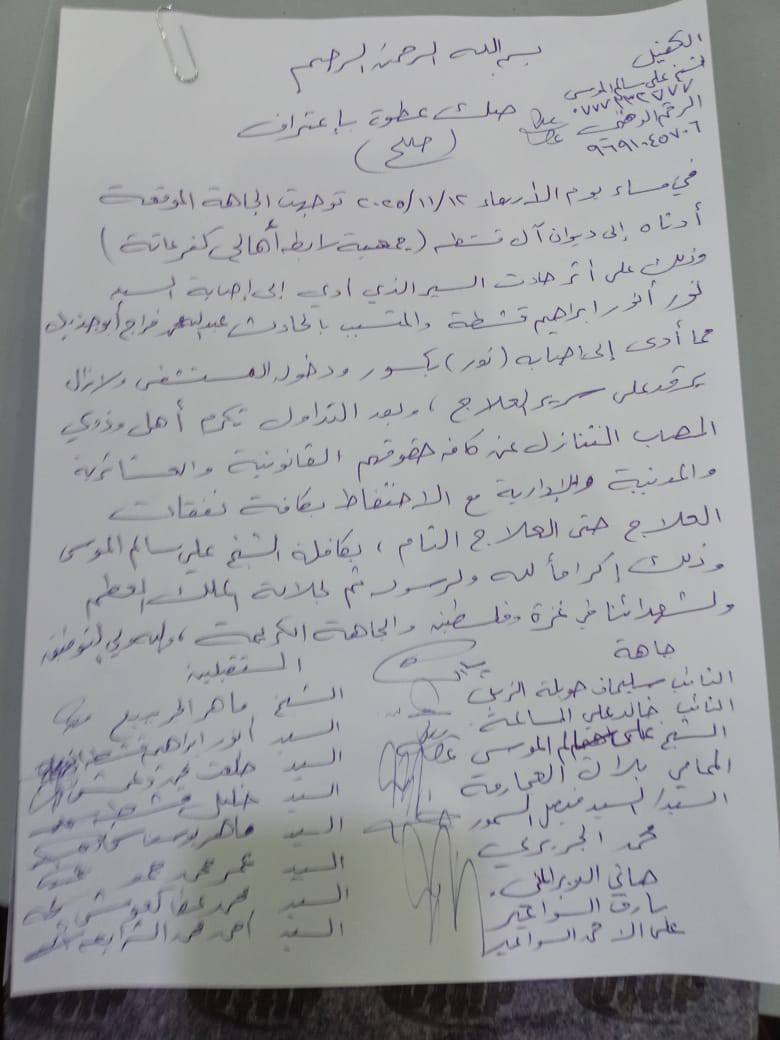 بسم الله الرحمن الرحيم
الكفيل
الشيخ علي سالم الموسى
٠٧٧٧٣٣٢٧٧٧
الرقم الوطني
٩٦٩١٠٤٥٧٠٦
صك عطوة بإعتراف
(صلح)
في مساء يوم الأربعاء ٢٠٢٥/١١/١٢ توجهت الجاهة الموقعة
أدناه إلى ديوان آل قشطه (جمعية رابطه أهالي كفرعانة)
وذلك على أثر حادث السير الذي أدى إلى إصابة السيد
نور أنور ابراهيم قشطة والمتسبب بالحادث فراج أبو
مما أدى إلى اصابه (نور) بكسور ودخوله المستشفى ولازال
يرقد على سرير العلاج ، وبعد التداول تكرم أهل وذوي
المصاب التنازل عن كافه حقوقهم القانونية والعشائرية
والمدنية والإدارية مع الاحتفاظ بكافة نفقات
العلاج حتى العلاج التام ، بكفالة الشيخ علي سالم الموسى
وذلك إكراماً لله ولرسوله ثم لجلالة الملك المعظم
ولشهدائنا في غزة وفلسطين والجاهة الكريمة ، والله ولي التوفيق
جاهة
النائب سليمان حويلة الزبن
النائب خالد علي
الشيخ علي سالم الموسى
المحامي بلال العجارمة
السيد فيصل السمور
محمد الجريري
هاني
السواعير
علي الاحمد السواعير
المستقبلين
الشيخ ماهر
السيد أنور ابراهيم قشطة
السيد طلعت محمد
السيد خليل قشطة
السيد ماهر
السيد عمر محمد
السيد محمد عطا
السيد احمد محمد